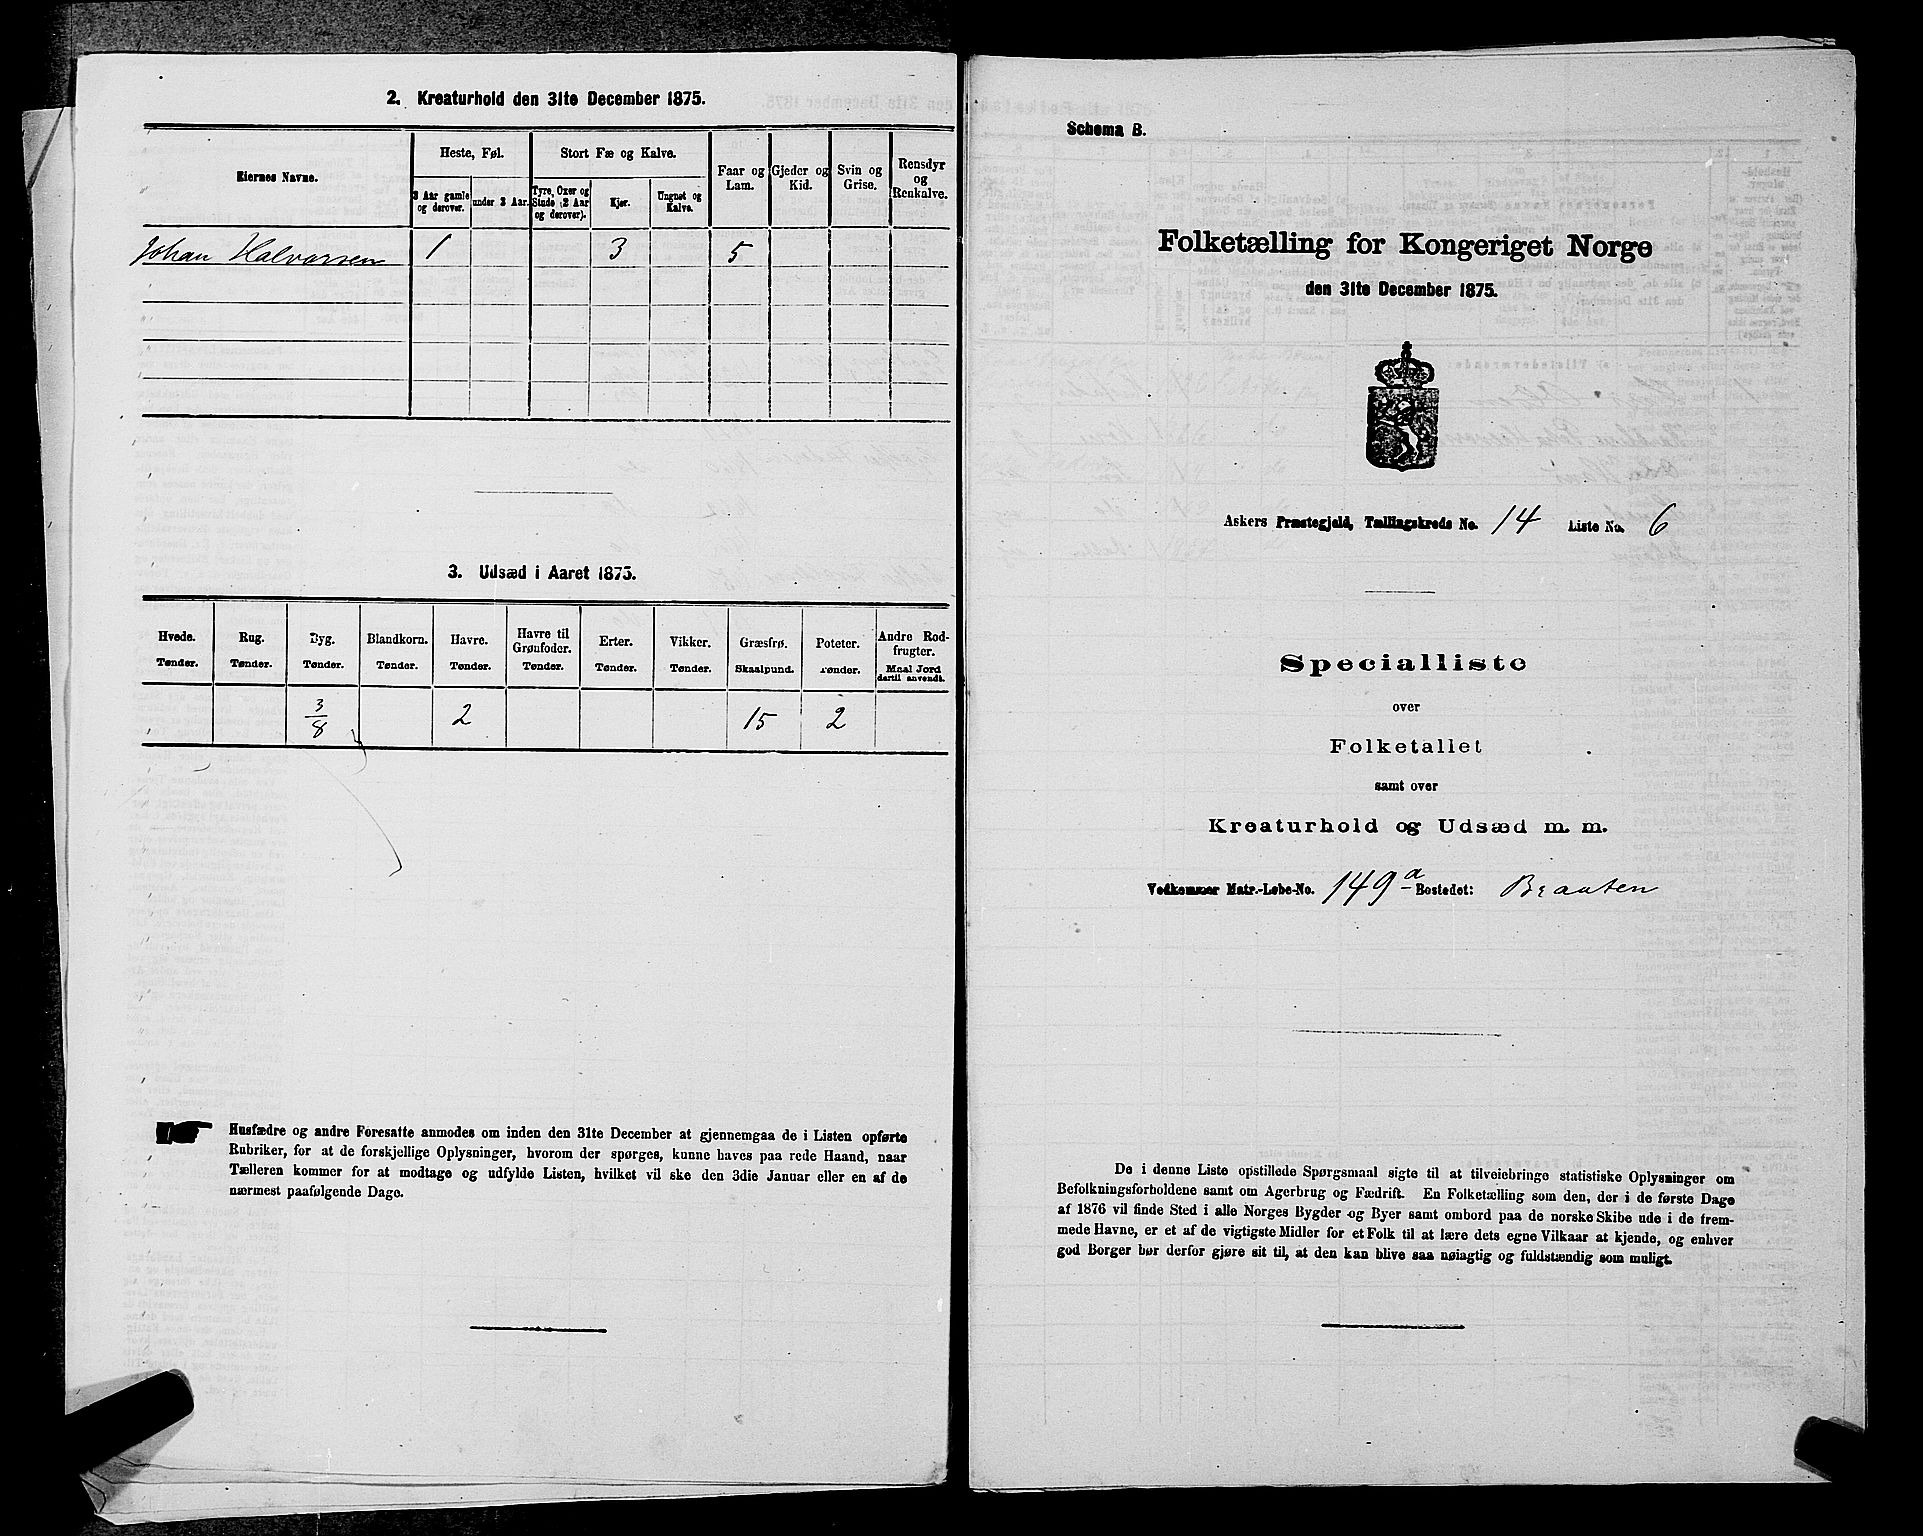 2. Kreaturhold den 31te December 1875.
Eiernes Navne.
Heste, Føl.
3 Aar gamle og derover.
under 3 Aar.
Stort Fæ og Kalve.
Tyre, Oxer og Stude (2 Aar og derover).
Kjør.
Ungnøt og Kalve.
Faar og Lam.
Gjeder og Kid.
Svin og Grise.
Rensdyr og Renkalve.
Johan Halvorsen 1 3 5
3. Udsæd i Aaret 1875.
Hvede. Rug. Byg. Blandkorn. Havre. Havre til Grønfoder. Erter. Vikker. Græsfrø. Poteter. Andre Rodfrugter.
Tønder. Tønder. Tønder. Tønder. Tønder. Tønder. Tønder. Tønder. Skaalpund. Tønder. Maal Jord dertil anvendt.
3/8 2 15 2
Husfædre og andre Foresatte anmodes om inden den 31te December at gjennemgaa de i Listen opførte
Rubriker, for at de forskjellige Oplysninger, hvorom der spørges, kunne haves paa rede Haand, naar
Tælleren kommer for at modtage og udfylde Listen, hvilket vil ske den 3die Januar eller en af de
nærmest paafølgende Dage.
Schema B.
Folketælling for Kongeriget Norge
den 31te December 1875.
Askers Præstegjeld, Tællingskreds No. 14 Liste No. 6
Specialliste
over
Folketallet
samt over
Kreaturhold og Udsæd m. m.
Vedkommer Matr.-Løbe-No. 149a Bostedet: Braaten
De i denne Liste opstillede Spørgsmaal sigte til at tilveiebringe statistiske Oplysninger om
Befolkningsforholdene samt om Agerbrug og Fædrift. En Folketælling som den, der i de første Dage
af 1876 vil finde Sted i alle Norges Bygder og Byer samt ombord paa de norske Skibe ude i de frem-
mede Havne, er et af de vigtigste Midler for et Folk til at lære dets egne Vilkaar at kjende, og enhver
god Borger bør derfor gjøre sit til, at den kan blive saa nøiagtig og fuldstændig som muligt.